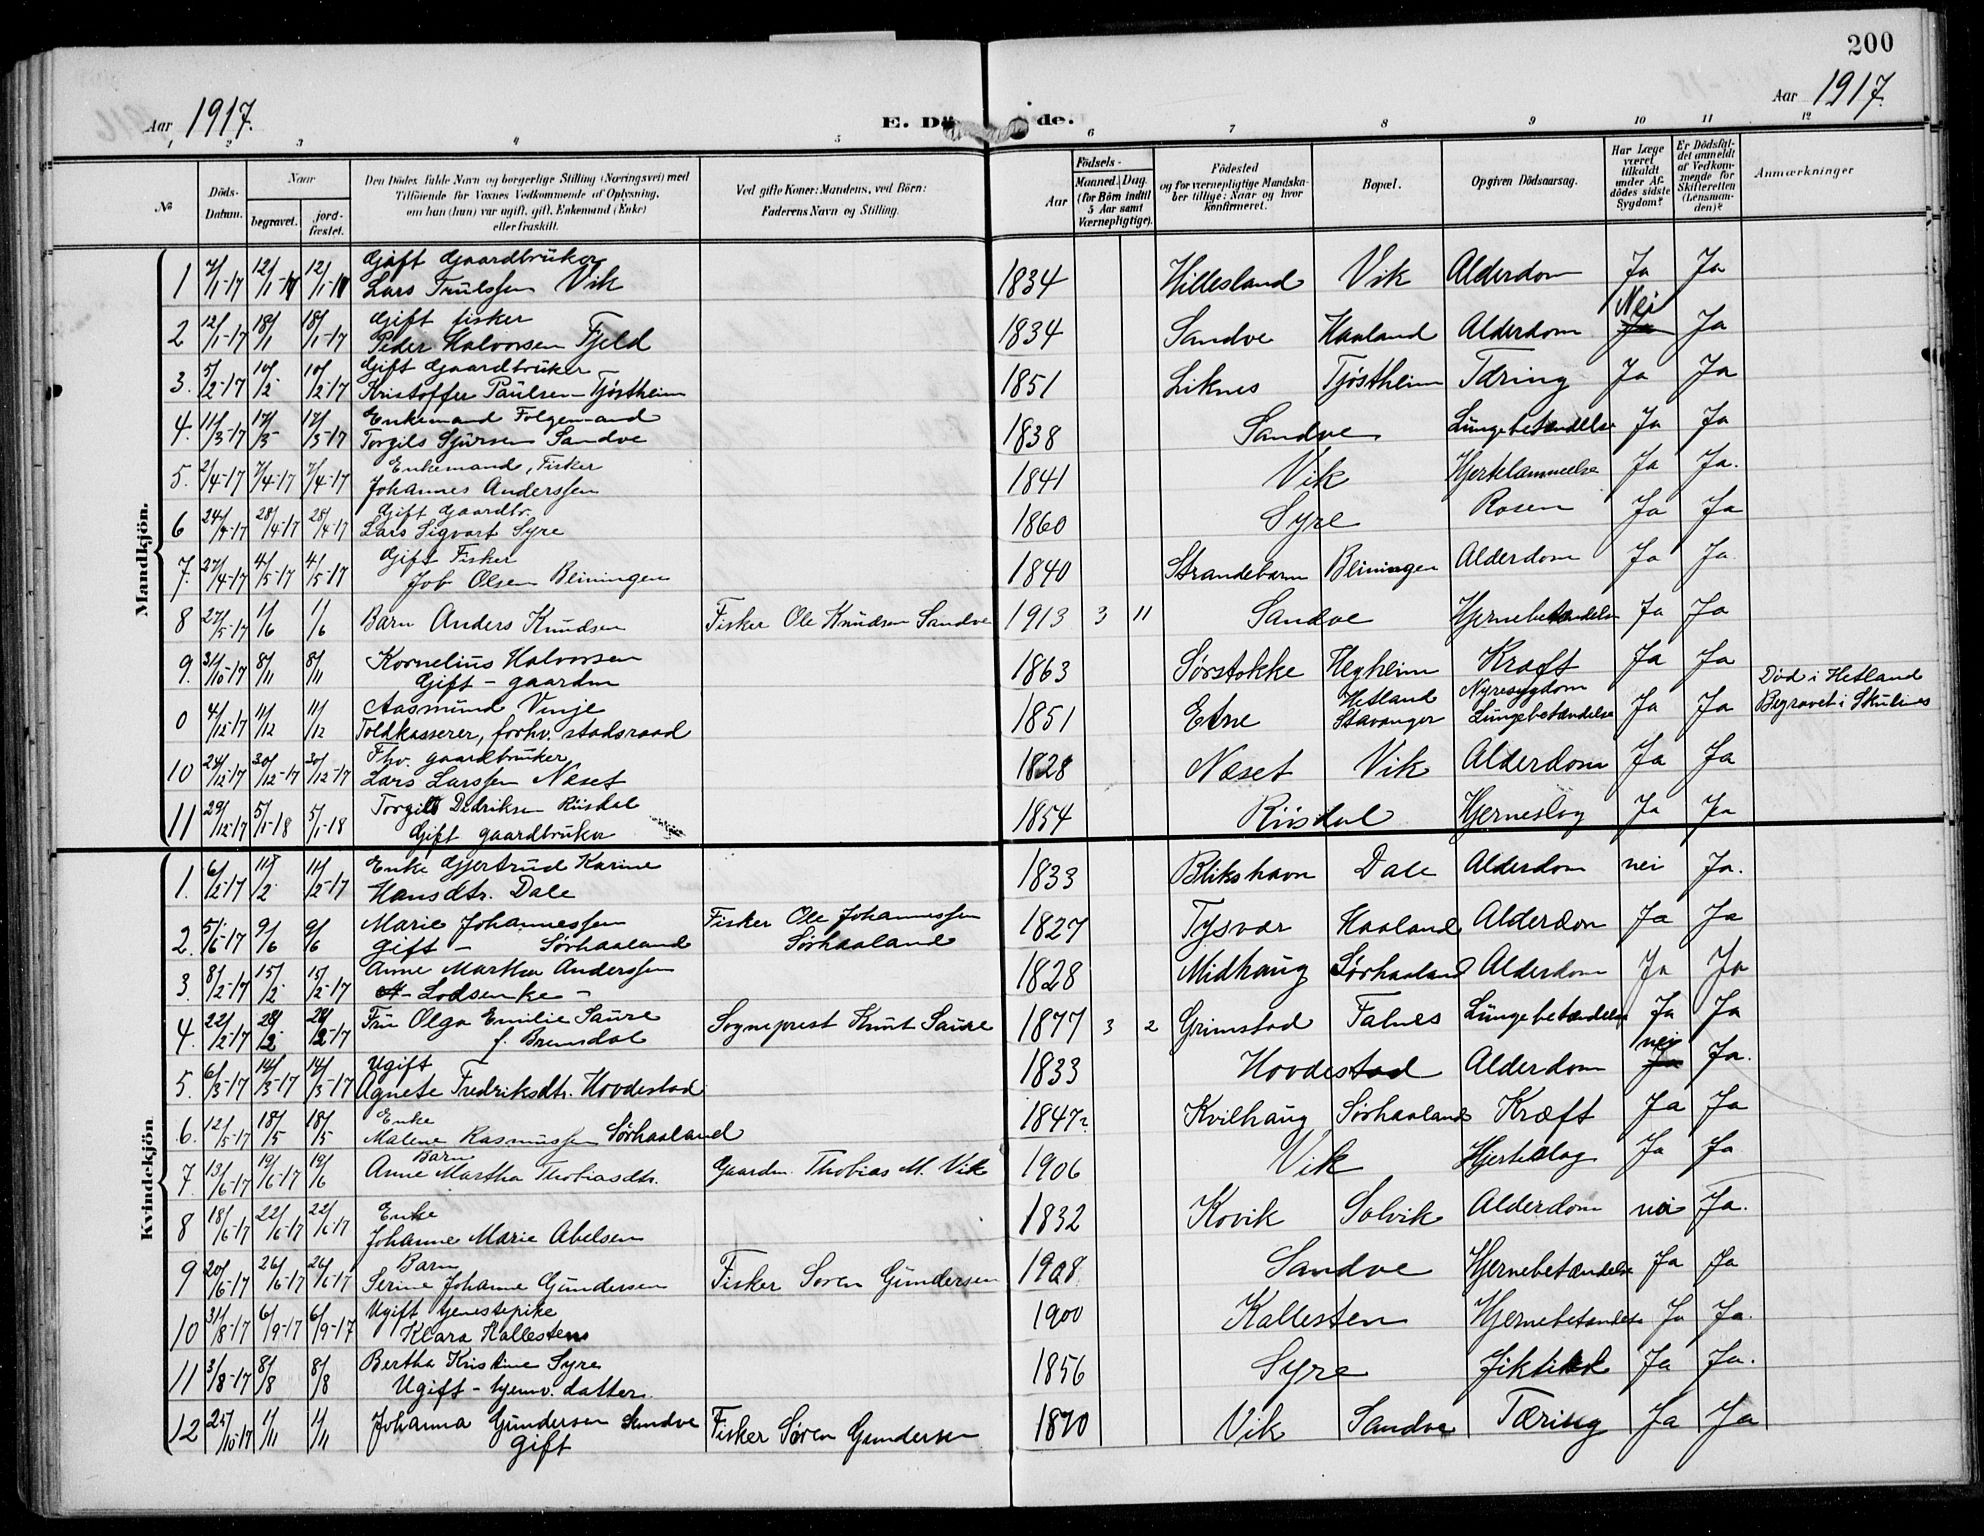 200
Aar 1917.
E. Dö de.
Aar 1917.
1 2 3 4 5 6 7 8 9 10 11 12
№
Döds-Datum.
Naar
begravet.
jord-fæstet.
Den Dödes fulde Navn og borgerlige Stilling (Næringsvei) med
Tilföiende for Voxnes Vedkommende af Oplysning,
om han (hun) var ugift, gift, Enkemand (Enke)
eller fraskilt.
Ved gifte Koner: Mandens, ved Börn:
Faderens Navn og Stilling.
Födsels-
Aar
Maaned. Dag.
(for Börn indtil
5 Aar samt
Værnepligtige).
Födested
og for værnepligtige Mandska-
ber tillige: Naar og hvor
konfirmeret.
Bopæl.
Opgiven Dödsaarsag.
Har Læge
været
tilkaldt
under Af-
dödes sidste
Sygdom?
Er Dödsfal-
det anmeldt
af Vedkom-
mende for
Skifteretten
(Lensman-
den)?
Anmærkninger
Mandkjön.
1 7/1-17 12/1-17 12/1-17 Gift Gaardbruker
Lars Trulssen Vik 1834 Hillesland Vik Alderdom Ja Ja
2 12/1-17 18/1 18/1-17 Gift fisker
Peder Halvorsen Fjeld 1834 Sandve Haaland Alderdom Nei Ja Ja
3. 5/2-17 10/2- 10/2-17 Gift Gaardbruker
Kristoffer Paulsen Tjöstheim 1851 Liknes Tjöstheim Tæring Ja Ja
4. 11/3-17 17/3- 17/3-17 Enkemand Folgemand
Torgils Sjursen Sandve 1838 Sandve Lungebetændelse Ja Ja
5. 2/4-17 7/4-17 7/4-17 Enkemand, Fisker
Johannes Anderssen 1841 Vik Hjertelammelse Ja Ja.
6 24/4-17 28/4-17 28/4-17 Gift Gaardbr.
Lars Sigvart Syre 1860 Syre Rosen Ja Ja
7. 27/4-17 4/5-17 4/5-17 Gift Fisker
Job Olsen Bliningen 1840 Strandebarm Bliningen Alderdom Ja Ja.
8 27/5-17 1/6 1/6 Barn Anders Knudsen Fisker Ole Knudsen Sandve 1913 3 11 Sandve Hjernebetændelse Ja Ja
9. 31/10-17 8/11 8/11 Kornelius Halvorsen
Gift - gaardm 1863 Sørstokke Hegheim Kræft Ja Ja
0 4/12-17 11/12 11/12 Aasmund Vinje
Toldkasserer, forhv. stadsraad 1851 Etne Hetland Stavanger Nyresygdom Lungebetændelse Ja Ja Död i Hetland
Begravet i Skulnes
10 24/12-17 30/12-17 30/12-17 Fhv. gaardbruker
Lars Larssen Næset 1828 Næset Vik Alderdom Ja Ja
11 29/12-17 5/1-18 5/1-18 Torgils Didriksen Risdal
Gift gaardbruker 1854 Risdal Hjerneslag Ja Ja
Kvindekjön
1. 6/2-17 11/2. 11/2-17 Enke Gjertrud Karine
Hansdtr. Dale 1833 Blikshavn Dale Alderdom nei Ja.
2. 5/6-17 9/6 9/6 Marie Johannessen
gift - Sørhaaland Fisker Ole Johannessen
Sørhaaland 1827 Tysvær Haaland Alderdom Ja Ja
3. 8/2-17 15/2- 15/2-17 Anne Martha Anderssen
- Lodsenke - 1828 Midhaug Sørhaaland Alderdom Ja Ja
4. 22/2-17 28/2 28/2-17 Fru Olga Emilie Saure
f. Bremdal Sogneprest Knut Saure 1877 3 2 Grimstad Falnes Lungebetændelse Ja Ja
5 6/3-17 14/3-17 14/3-17 Ugift
Agnete Fredriksdtr. Hovdestad 1833 Hovdestad Alderdom nei Ja Ja.
6. 12/5-17 18/5 18/5 Enke
Malene Rasmussen Sørhaaland 1847? Kvilhaug Sørhaaland Kræft Ja Ja
7. 13/6-17 19/6-17 19/6 Barn
Anne Martha Thobiasdtr. Gaardm. Thobias M. Vik 1906 Vik Hjerteslag Ja Ja
8 18/6-17 22/6-17 22/6-17 Enke
Johanne Marie Abelsen 1832 Kovik Solvik Alderdom nei Ja.
9 20/6-17 26/6-17 26/6-17 Barn
Serine Johanne Gundersen Fisker Soren Gundersen 1908. Sandve Hjernebetændelse Ja Ja
10 31/8-17 6/9-17 6/9-17 Ugift tjenestepike
Klara Kallesten 1900 Kallesten Hjernebetændelse Ja Ja.
11 3/8-17 8/8 8/8 Bertha Kristine Syre
Ugift - hjemv. datter. 1856 Syre Ja Ja.
12 25/10-17 1/11 1/11 Johanna Gundersen Sandve
Gift Fisker Søren Gundersen 1870 Vik Sandve Tæring Ja Ja